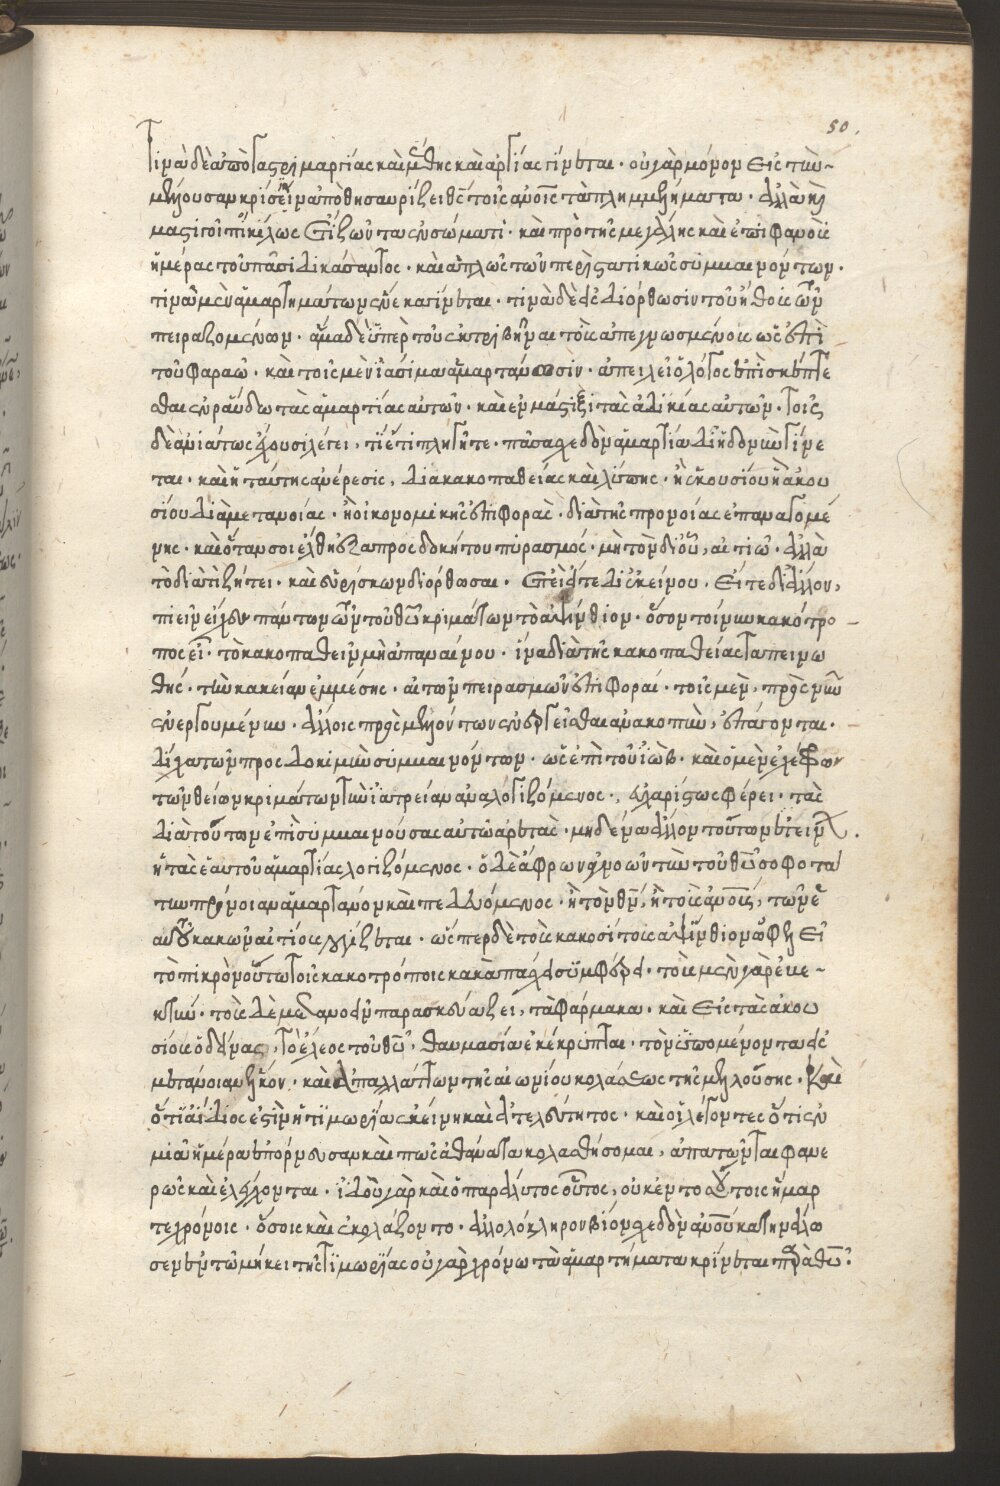 50.
τινὰ δὲ ἀπὸ γαστριμαργίας καὶ μέθης καὶ ἀργίας γίνεται· οὐ γὰρ μόνον εἰς τὴν
μέλλουσαν κρίσιν ἐναποθησαυρίζει θεὸς τοῖς ἀνθρώποις τὰ πλημμελήματα· ἀλλὰ καὶ
μάστιγι ποικίλως ζῶντας ἐν σώματι· καὶ πρὸ τῆς μεγάλης καὶ ἐπιφανοῦς
ἡμέρας τοῦ πᾶσι δικάσαντος· καὶ ἁπλῶς τῶν περιστατικῶς συμβαινόντων·
τινὰ μὲν ἁμαρτημάτων ἕνεκα γίνεται· τινὰ δὲ ἐς διόρθωσιν τοῦ ἤθους τῶν
πειραζομένων· ἅμα δὲ ὑπὲρ τοῦ ἐκτριβῆναι τοὺς ἀπεγνωσμένους ὡς ἐπὶ
τοῦ φαραώ· καὶ τοῖς μὲν ἰάσιμα ἁμαρτάνουσιν· ἀπειλεῖ ὁ λόγος ἐπισκέπτε
σθαι ἐν ῥάβδω τὰς ἁμαρτίας αὐτῶν· καὶ ἐν μάστιξι τὰς ἀδικίας αὐτῶν· τοῖς
δὲ ἀνιάτως ἔχουσι λέγει, τί ἔτι πληγῆτε· πᾶσα σχεδὸν ἁμαρτία δι' ἡδονὴν γίνε
ται· καὶ ἡ ταύτης ἀναίρεσις, διὰ κακοπαθείας καὶ λύπης· ἢ ἑκουσίου ἢ ἀκου
σίου διὰ μετανοίας· ἢ οἰκονομικῆς ἐπιφορᾶς· διὰ τῆς προνοίας ἐπαναγομέ
νης· καὶ ὅταν σοι ἔλθη ἀπροσδοκήτου πειρασμός· μὴ τὸν δι' οὗ, αἰτιῶ· ἀλλὰ
τὸ διὰ τί ζήτει· καὶ εὑρίσκων διόρθωσαι· ἐπεὶ εἴτε δι' ἐκείνου, εἴτε δι' ἄλλου,
πιεῖν εἶχες πάντων τῶν τοῦ θεοῦ κριμάτων τὸ ἀψίνθιον· ὅσον τοίνυν κακότρο
πος εἶ· τὸ κακοπαθεῖν μὴ ἀπαναίνου· ἵνα διὰ τῆς κακοπαθείας ταπεινω
θῆς· τὴν κακείαν ἐμμέσης· αἱ τῶν πειρασμῶν ἐπιφοραί· τοῖς μὲν, πρὸς
ἐνεργουμένων· ἄλλοις πρὸς μελλόντων ἐνεργεῖσθαι ἀνακοπὴν, ἐπάγονται·
δίχα τῶν πρὸς δοκιμὴν συμβαινόντων· ὡς ἐπὶ τοῦ ἰώβ· καὶ ὁ μὲν ἐχέφρων
τῶν θείων κριμάτων τὴν ἰατρείαν ἀναλογιζόμενος, εὐχαρίστως φέρει· τὰς
διὰ τούτων ἐπισυμβαινούσας αὐτῶ ἀρετάς· μηδένα ἄλλον τούτων
ἢ τὰς ἑαυτοῦ ἁμαρτίας λογιζόμενος· ὁ δὲ ἄφρων ἀγνοῶν τὴν τοῦ θεοῦ σοφοτά
την πρόνοιαν ἁμαρτάνον καὶ παιδευόμενος· ἢ τὸν θεὸν, ἢ τοὺς ἀνθρώπους, τῶν ἑ
αυτοῦ κακῶν αἰτίους λογίζεται· ὥσπερ δὲ τοὺς κακοσίτους ἀψίνθιον ὠφελεῖ
τὸ πικρὸν οὕτω τοῖς κακοτρόποις κακὰ παθεῖν συμφέρει· τοὺς μὲν γὰρ εὐε
κτεῖν· τοὺς δὲ μετανοεῖν παρασκευάζει, τὰ φάρμακα· καὶ εἰς τὰς ἀκου
σίους ὀδύνας, τὸ ἔλεος τοῦ θεοῦ, θαυμασία ἐκέκρυπται· τὸν ὑπομένοντα εἰς
μετάνοιαν ἕλκον· καὶ ἀπαλλάττων τῆς αἰωνίου κολάσεως τῆς μελλούσης· καὶ
ὅτι ἀΐδιος ἐστὶν ἡ τιμωρία ἐκείνη καὶ ἀτελεύτητος· καὶ οἱ λέγοντες ὅτι ἐν
μιᾶ ἡμέρα ἐπόρνευσα καὶ πῶς ἀθάνατα κολασθήσομαι, ἀπατῶνται φανε
ρῶς καὶ ἐλέγχονται· ἰδοὺ γὰρ καὶ ὁ παράλυτος οὗτος, οὐκ ἐν τοσούτοις ἥμαρ
τε χρόνοις· ὅσοις καὶ ἐκολάζοντο· ἀλλ' ὁλόκληρον βίον σχεδὸν ἀνθρώπου κατηνάλω
σεν ἐν τῶ μήκει τῆς τιμωρίας οὐ γὰρ χρόνω τὰ ἁμαρτήματα κρίνεται παρὰ θεῶ·